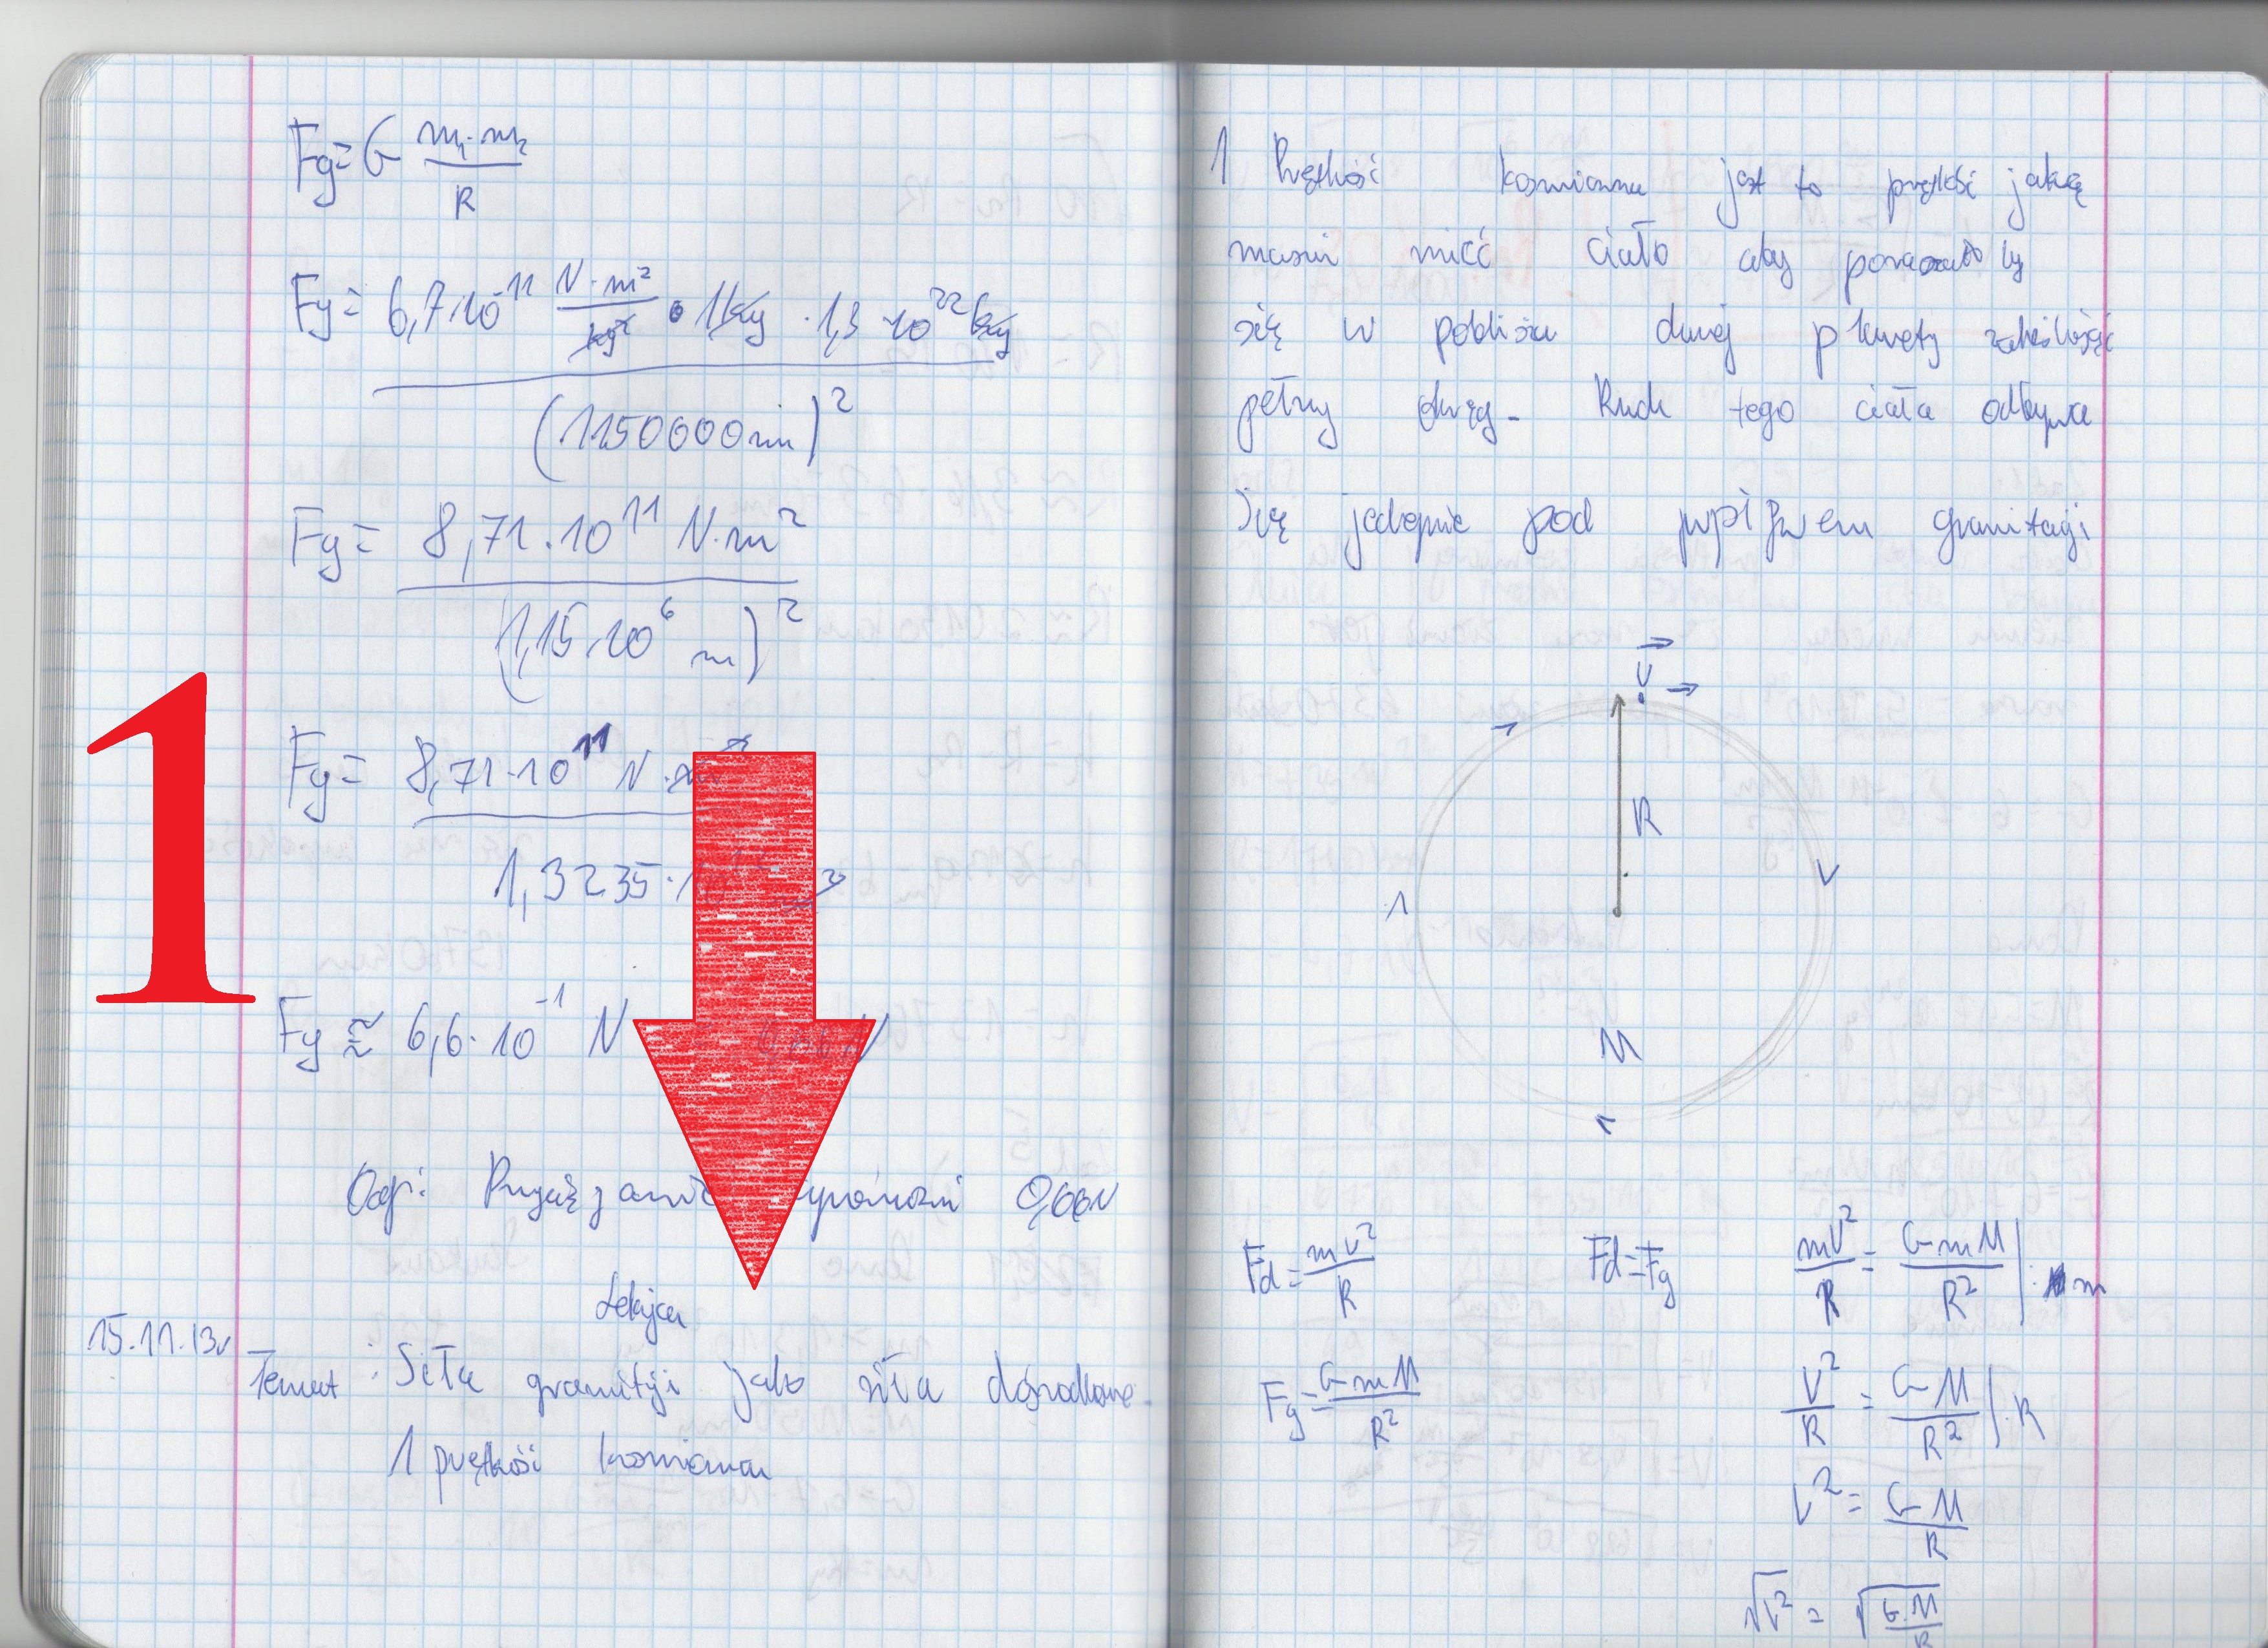 Fg = G \frac{m_1 \cdot m_2}{R}
Fg = \frac{6,7 \cdot 10^{-11} \frac{N \cdot m^2}{kg^2} \cdot 1kg \cdot 1,3 \cdot 10^{22} kg}{(1150000m)^2}
Fg = \frac{8,71 \cdot 10^{11} N \cdot m^2}{(1,15 \cdot 10^6 m)^2}
Fg = \frac{8,71 \cdot 10^{11} N}{1,3235}
1
Fg ≈ 6,6 \cdot 10^{-1} N
Odp: 0,66N
Lekcja
15.11.13r
Temat: Siła grawitacji jako siła dośrodkowa.
1 prętkość kosmiczna
1 Prętkość kosmiczna jest to prętkość jaką
musi mieć ciało aby
się w pobliżu danej planety
pełny okręg. Ruch tego ciała odbywa
się jedynie pod wpływem grawitacji
\vec{V} →
R
V
M
Fd = \frac{mv^2}{R}
Fd = Fg
\frac{mV^2}{R} = \frac{GmM}{R^2} | : m
Fg = \frac{GmM}{R^2}
\frac{V^2}{R} = \frac{GM}{R^2} | \cdot R
V^2 = \frac{GM}{R}
\sqrt{V^2} = \sqrt{\frac{G \cdot M}{R}}